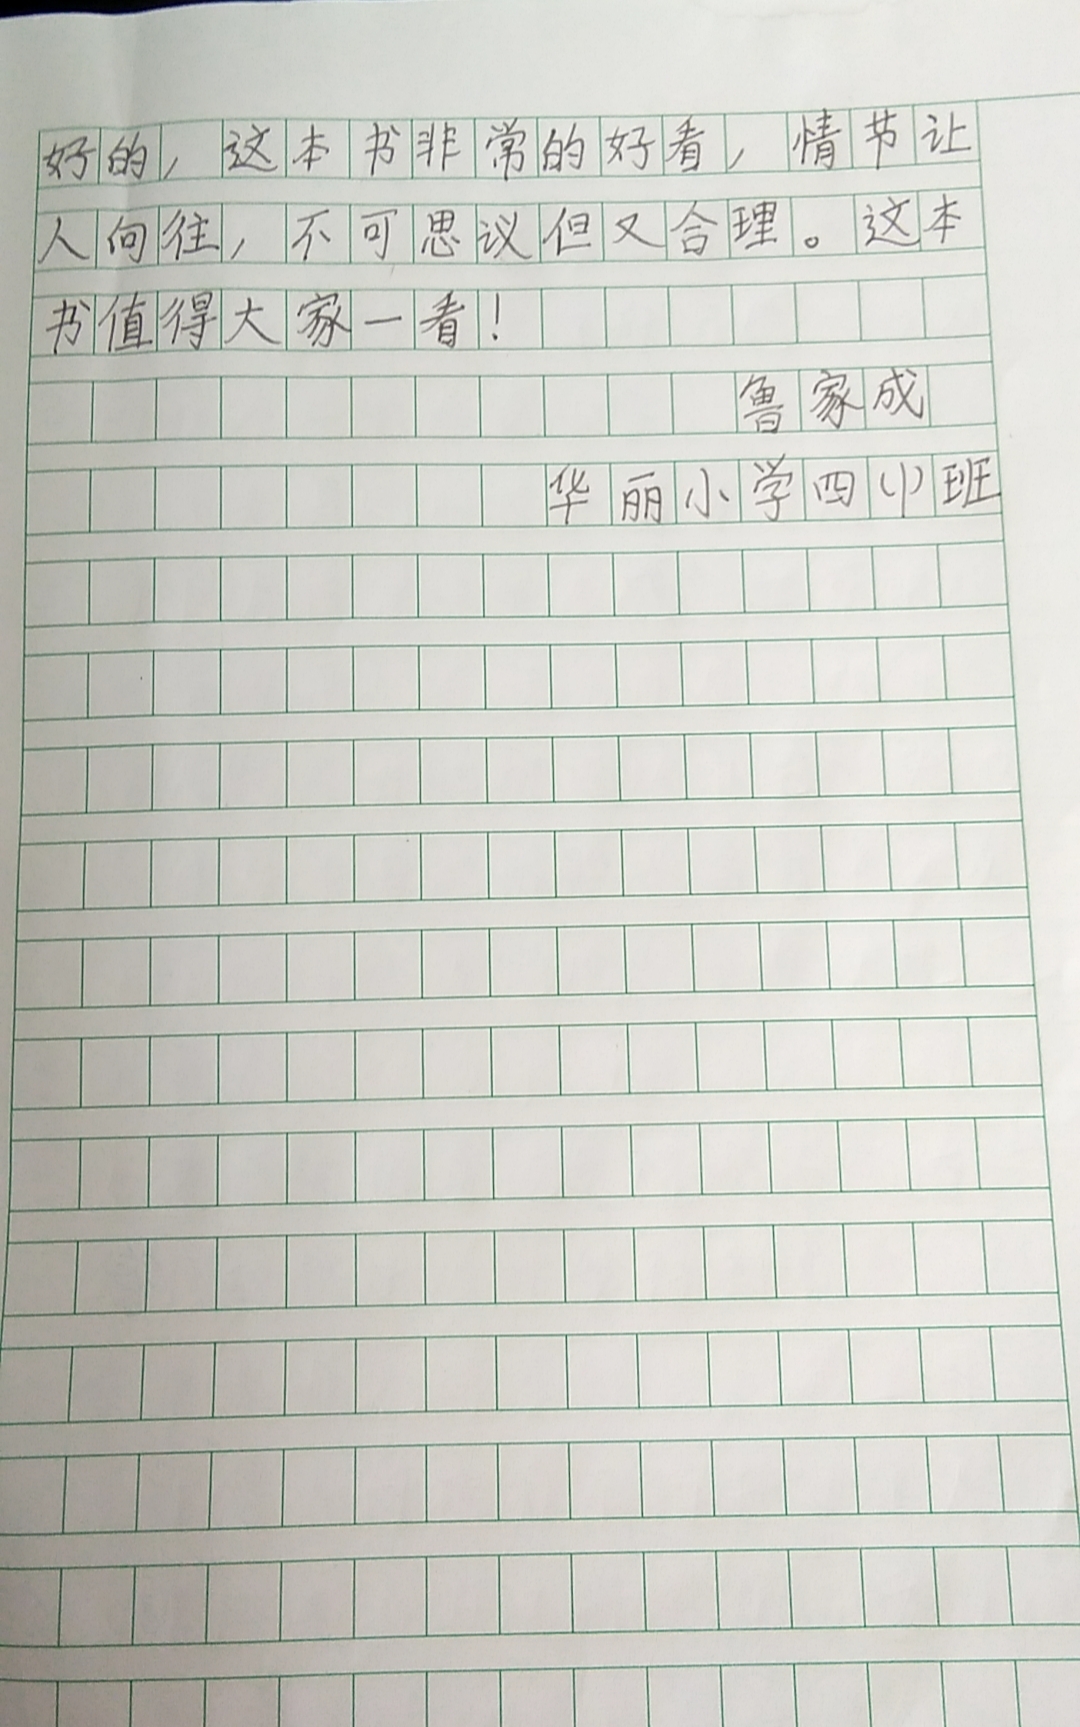 好的，这本书非常的好看，情节让
人向往，不可思议但又合理。这本
书值得大家一看！
鲁家成
华丽小学四(1)班